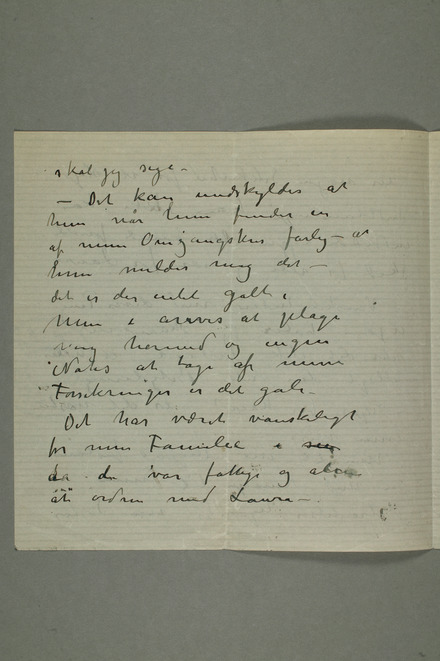 skal jeg sige –
– Det kan undskyldes at
hun når hun finder en
af min Omgangskres farlig – at
hun melder mig det –
det er der intet galt i
Men i årevis at plage
mig hermed og ingen
Notis at tage af mine
Forsikringer er det gale.
Det har været vanskeligt
for min Familie i
da de var fattige og
at ordne med Laura –.